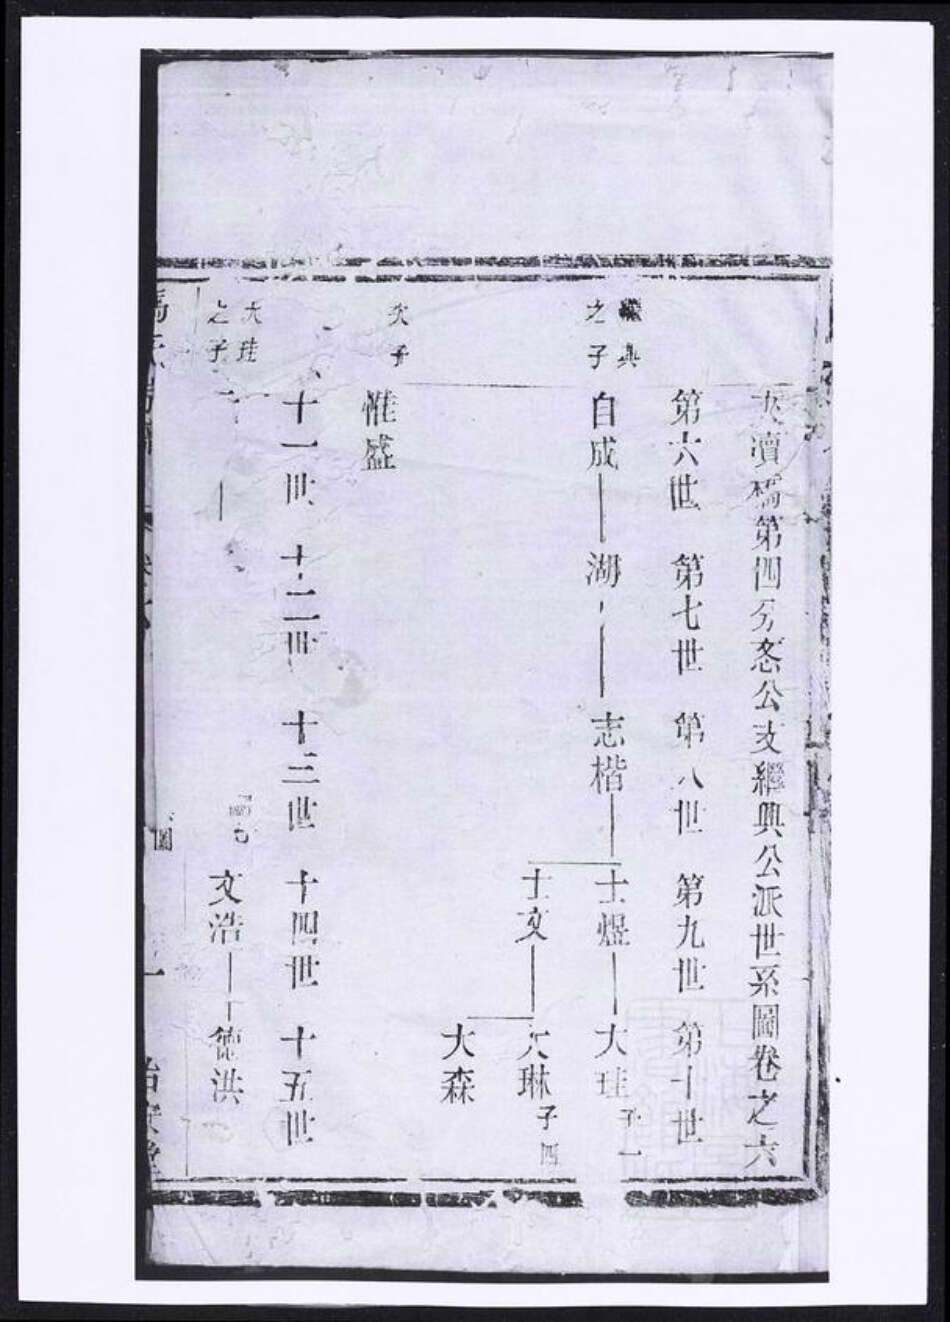 大瀆橋第四分悆公支繼興公派世系圖卷之六
第六世 第七世 第八世 第九世 第十世
繼興
之子
自成 湖 志楷 士煜 大珪 子一
士文 大琳 子四
大森
次子
惟盛
十一世 十二世 十三世 十四世 十五世
大珪
之子
文浩 德洪
圖